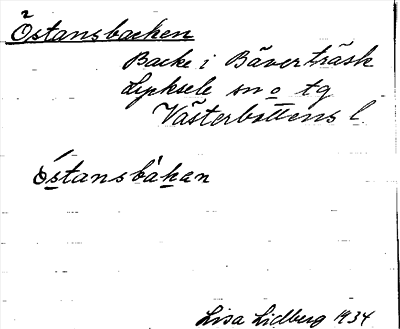 Östansbacken
Backe i Bäverträsk
Lycksele sn o tg
Västerbottens l.
óstansbàkan
Lisa Lidberg 1934